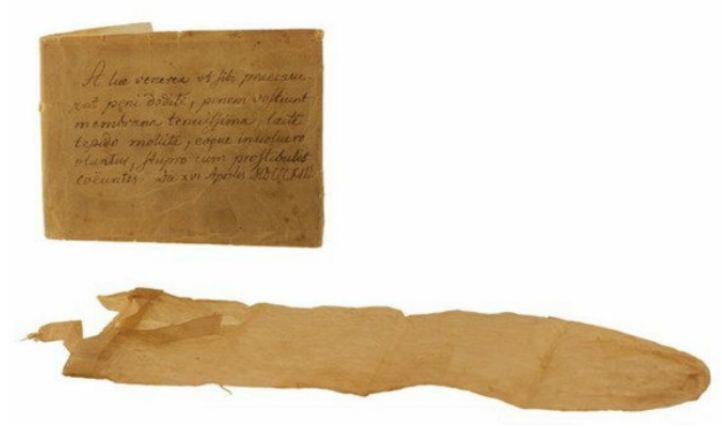 A lue venerea vt sibi praecaue-
rēt peni dedite, penem vestiunt
membrana tenuissima, lacte
tepido mollite, eoque inuolucro
vtuntur, stupro cum prostibulis
coëuntes. Da xvi Aprilis